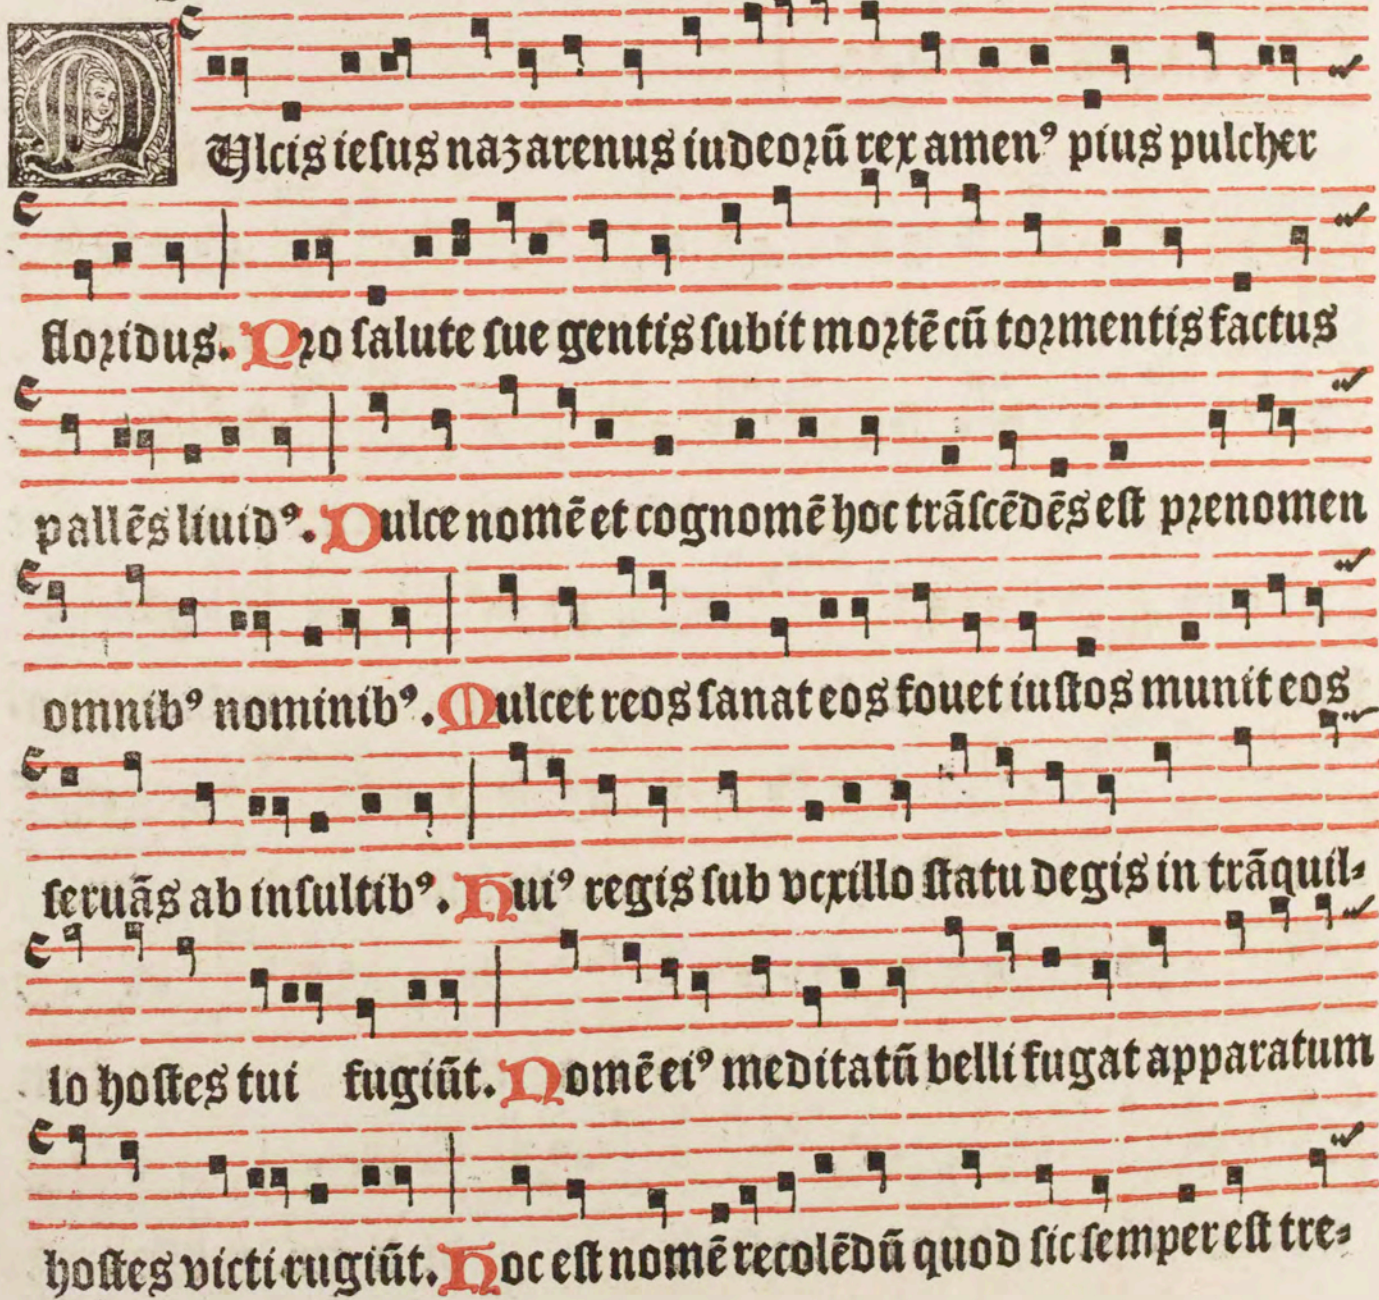 DUlcis ieſus nazarenus iudeoꝛū rex amenꝰ pius pulcher
floꝛidus. Pꝛo ſalute ſue gentis ſubit moꝛtē cū toꝛmentis factus
pallēs liuidꝰ. Dulce nomē et cognomē hoc trāſcēdēs eſt pꝛenomen
omnibꝰ nominibꝰ. Mulcet reos ſanat eos fouet iuſtos munit eos
ſeruās ab inſultibꝰ. Huiꝰ regis ſub vexillo ſtatu degis in trāquil⸗
lo hoſtes tui fugiūt. Nomē eiꝰ meditatū belli fugat apparatum
hoſtes victi rugiūt. Hoc eſt nomē recolēdū quod ſic ſemper eſt tre⸗